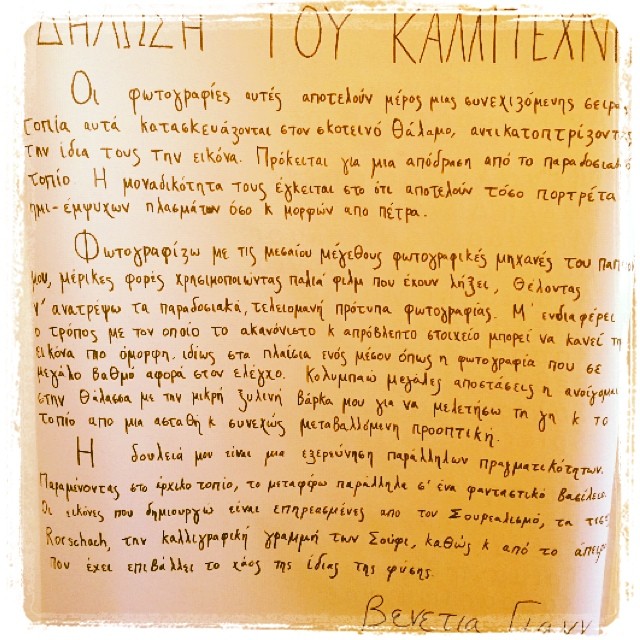 ΔΗΛΩΣΗ ΤΟΥ ΚΑΛΛΙΤΕΧΝΗ
Οι φωτογραφίες αυτές αποτελούν μέρος μιας συνεχιζόμενης σειρά
τοπία αυτά κατασκευάζονται στον σκοτεινό θάλαμο, αντικατοπτρίζοντ
την ίδια τους την εικόνα. Πρόκειται για μια απόδραση από το παραδοσιακ
τοπίο. Η μοναδικότητα τους έγκειται στο ότι αποτελούν τόσο πορτρέτα
ημι-έμψυχων πλασμάτων όσο κ μορφών απο πέτρα.
Φωτογραφίζω με τις μεσαίου μεγέθους φωτογραφικές μηχανές του παπ
μου, μερικες φορές χρησιμοποιώντας παλιά φιλμ που έχουν λήξει, θέλοντας
ν' ανατρέψω τα παραδοσιακά, τελειομανή πρότυπα φωτογραφίας. Μ' ενδιαφέρει
ο τρόπος με τον οποίο το ακανόνιστο κ απρόβλεπτο στοιχείο μπορεί να κανεί τη
εικόνα πιο όμορφη. ιδίως στα πλαίσια ενός μέσου όπως η φωτογραφία που σε
μεγάλο βαθμό αφορά στον έλεγχο. Κολυμπαώ μεγάλες αποστάσεις η ανοίγομαι
στην θάλασσα με την μικρή ξυλινή βάρκα μου για να μελετήσω τη γη κ το
τοπίο απο μια ασταθή κ συνεχώς μεταβαλλόμενη προοπτική.
Η δουλειά μου είναι μια εξερεύνηση παράλληλων πραγματικότητων.
Παραμένοντας στο άρχικο τοπίο, το μεταφέρω παράλληλα σ' ένα φανταστικό βασίλειο.
Οι εικόνες που δημιουργώ είναι επηρεασμένες απο τον Σουρεαλισμό, τα τεστ
Rorschach, την καλλιγραφική γραμμή των Σούφι, καθώς κ από το άπειρ
που έχει επιβάλλει το χάος της ίδιας της φύσης.
Βενετία Γιανν